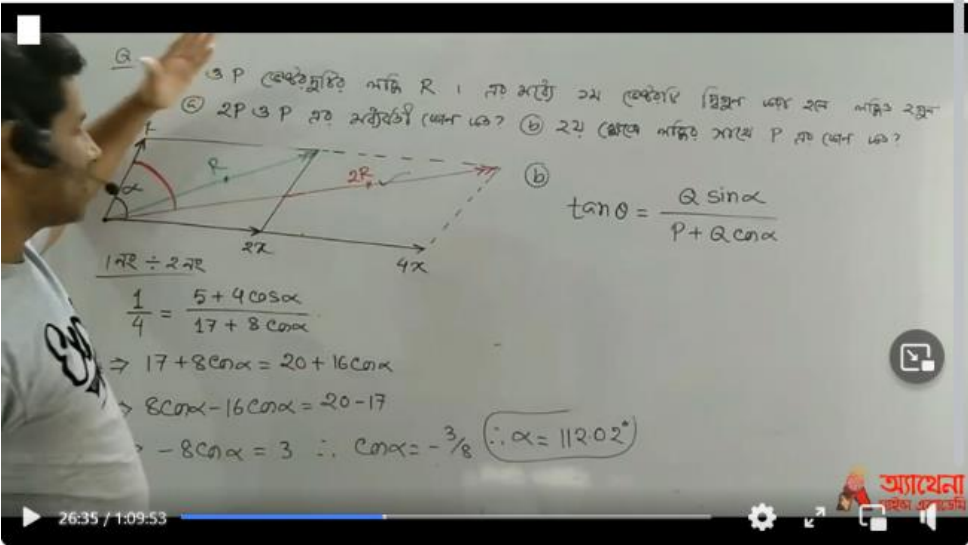 Q
ও P ভেক্টরদ্বয়টির লব্ধি R । এর মধ্যে ১ম ভেক্টরটি দ্বিগুণ করা হলে লব্ধিও ২গুন
ⓐ 2P ও P এর মধ্যবর্তী কোন কত? ⓑ ২য় ক্ষেত্রে লব্ধির সাথে P এর কোন কত?
α
R
2R
2x
4x
ⓑ
tanθ = Q sinα / P + Q cosα
1নং ÷ 2নং
1/4 = 5 + 4 cosα / 17 + 8 cosα
⇒ 17 + 8 cosα = 20 + 16 cosα
⇒ 8 cosα - 16 cosα = 20 - 17
- 8 cosα = 3 ∴ cosα = - 3/8 ∴ α = 112.02°
অ্যাথেনা
26:35 / 1:09:53